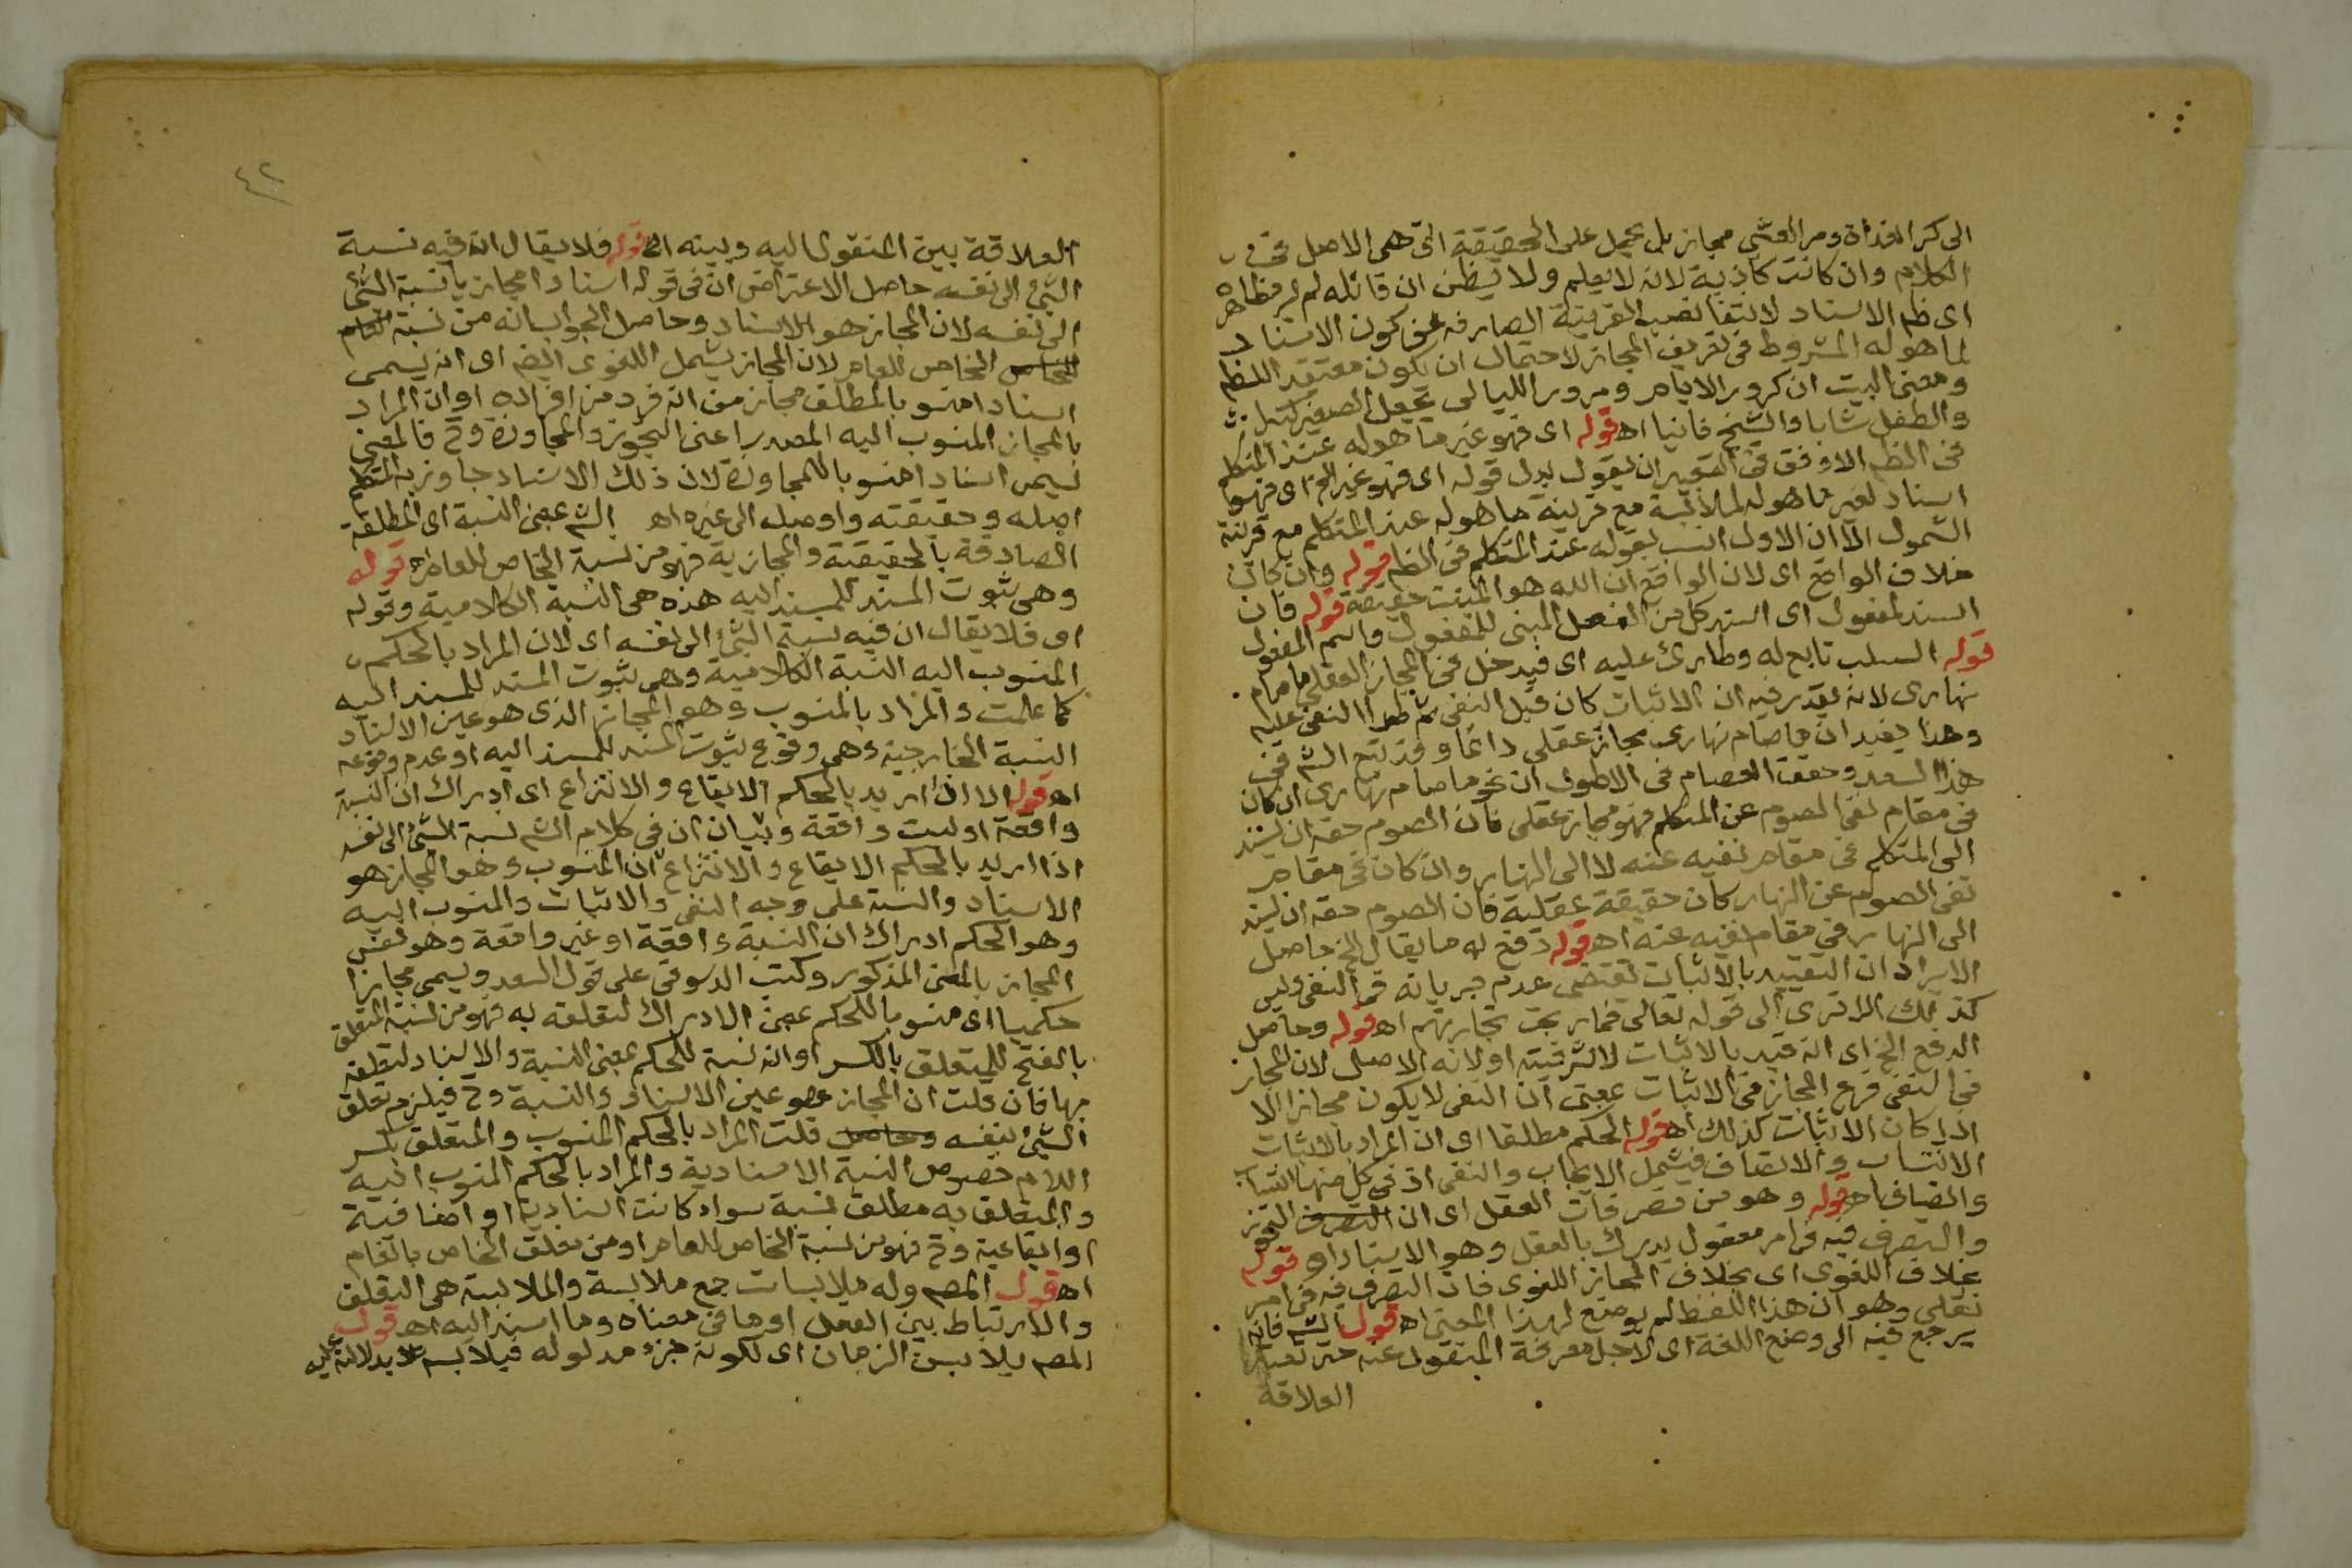 الى كر الغداة ومر العشى مجاز بل يحمل على الحقيقة التى هى الاصل فى
الكلام وان كانت كاذبة لانه لا يعلم ولا يظن ان قائله لم يرد ظاهره
اى ظهر الاسناد لانتفا نصب القرينة الصارفه عن كون الاسناد
لما هو له المشروط فى تعريف المجاز لاحتمال ان يكون معتقد الظهر
ومعنى البيت ان كرور الايام ومرور الليالى تجعل الصغير كبيرا
والطفل شابا والشيخ فانيا اه قوله اى فهو غير ما هو له عند المتكلم
فى الظهر الاوفق فى التعبير ان يقول بدل قوله اى فهو غير الخ اى فهو
اسناد لغير ما هو له لملابسة مع قرينة ما هو له عند المتكلم مع قرينة
الشمول الا ان الاول انسب بقوله عند المتكلم فى الظهر قوله وان كان
خلاف الواقع اى لان الواقع ان الله هو المنبت حقيقة قوله فان
اسند لمفعول اى اسند كل من الفعل المبنى للمفعول واسم المفعول
قوله السلب تابع له وطارئ عليه اى فيدخل فى المجاز العقلى ما صام
نهارى لانه يقدر فيه ان الاثبات كان قبل النفى ثم طرأ النفى عليه
وهذا يفيد ان ما صام نهارى مجاز عقلى دائما وقد تبع الشه فى
هذا السعد وحقق العصام فى الاطول ان نحو ما صام نهارى ان كان
فى مقام نفى الصوم عن المتكلم فهو مجاز عقلى فان الصوم حقه ان يسند
الى المتكلم فى مقام نفيه عنه لا الى النهار وان كان فى مقام
نفى الصوم عن النهار كان حقيقة عقلية فان الصوم حقه ان يسند
الى النهار فى مقام نفيه عنه اه قوله دفع له ما يقال الخ حاصل
الايراد ان التقييد بالاثبات يقتضى عدم جريانه فى النفى وليس
كذلك الا ترى الى قوله تعالى فما ربحت تجارتهم اه قوله وحاصل
الدفع الخ اى انه قيد بالاثبات لاشرفيته او لانه الاصل لان المجاز
فى النفى فرع المجاز فى الاثبات بمعنى ان النفى لا يكون مجازا الا
اذا كان الاثبات كذلك اه قوله الحكم مطلقا اى ان المراد بالاثبات
الانتساب والاتصاف فيشمل الايجاب والنفى اذ فى كل منهما انتساب
واتصاف اه قوله وهو من تصرفات العقل اى ان التصرف التجوز
والتصرف فيه فى امر معقول يدرك بالعقل وهو الاسناد اه قوله
بخلاف اللغوى اى بخلاف المجاز اللغوى فان التصرف فيه فى امر
نقلى وهو ان هذا اللفظ لم يوضع لهذا المعنى اه قول الشه فانه
يرجع فيه الى وضع اللغة اى لاجل معرفة المنقول عنه حتى تعتبر
العلاقة
٤٢
العلاقة بين المنقول اليه وبينه اه قوله فلا يقال ان فيه نسبة
الشئ الى نفسه حاصل الاعتراض ان فى قوله اسنادا مجازيا نسبة الشئ
الى نفسه لان المجاز هو الاسناد وحاصل الجواب انه من نسبة العام
للخاص الخاص للعام لان المجاز يشمل اللغوى ايضا اى انه يسمى
اسنادا منسوبا لمطلق مجاز من انه فرد من افراده او ان المراد
بالمجاز المنسوب اليه المصدر اعنى التجوز والمجاوزة وح فالمعنى
يسمى اسنادا منسوبا للمجاوزة لان ذلك الاسناد جاوز به المتكلم
اصله وحقيقته واوصله الى غيره اه الشه بمعنى النسبة اى المطلقة
الصادقة بالحقيقة والمجازية فهو من نسبة الخاص للعام اه قوله
وهى ثبوت المسند للمسند اليه هذه هى النسبة الكلامية وقوله
اى فلا يقال ان فيه نسبة الشئ الى نفسه اى لان المراد بالحكم
المنسوب اليه النسبة الكلامية وهى ثبوت المسند للمسند اليه
كما علمت والمراد بالمنسوب وهو المجاز الذى هو عين الاسناد
النسبة الخارجية وهى وقوع ثبوت المسند للمسند اليه او عدم وقوعه
اه قوله الا ان اريد بالحكم الايقاع والانتزاع اى ادراك ان النسبة
واقعة او ليست واقعة وبيان ان فى كلام الشه نسبة الشئ الى نفسه
اذا اريد بالحكم الايقاع والانتزاع ان المنسوب وهو المجاز هو
الاسناد والنسبة على وجه النفى والاثبات والمنسوب اليه
وهو الحكم ادراك ان النسبة واقعة او غير واقعة وهو نفس
المجاز بالمعنى المذكور وكتب الدسوقى على قول السعد ويسمى مجازا
حكميا اى منسوبا للحكم بمعنى الادراك لتعلقه به فهو من نسبة المتعلق
بالفتح للمتعلق بالكسر او انه نسبة للحكم بمعنى النسبة والاسناد لتعلقه
بها فان قلت ان المجاز هو عين الاسناد والنسبة وح فيلزم تعلق
الشئ بنفسه وحاصل قلت المراد بالحكم المنسوب والمتعلق بكسر
اللام خصوص النسبة الاسنادية والمراد بالحكم المنسوب اليه
والمتعلق به مطلق نسبة سواء كانت اسنادية او اضافية
او ايقاعية وح فهو من نسبة الخاص للعام او من تعلق الخاص بالعام
اه قول المصه وله ملابسات جمع ملابسة والملابسة هى التعلق
والارتباط بين الفعل او ما فى معناه وما اسند اليه اه قول
المصه يلابس الزمان اى لكونه جزء مدلوله فيلابسه بدلالته عليه